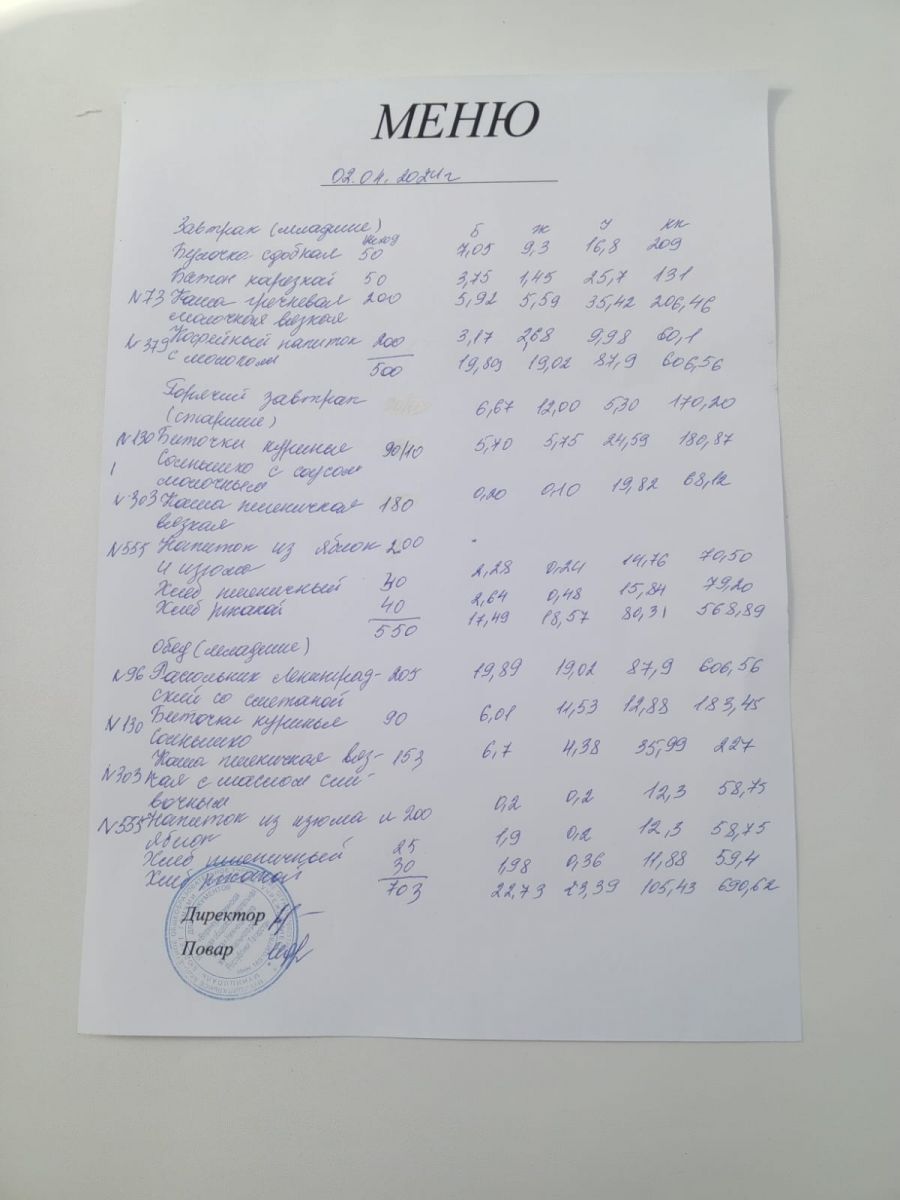 МЕНЮ
02.04.2024 г
Завтрак (младшие) выход Б Ж У кк
Булочка сдобная 50 7,05 9,3 16,8 209
Батон нарезной 50 3,75 1,45 25,7 131
N73 Каша гречневая 200 5,92 5,59 35,42 206,46
молочная вязкая
N379 Кофейный напиток 200 3,17 2,68 9,98 60,1
с молоком 500 19,89 19,02 87,9 606,56
Горячий завтрак 6,67 12,00 5,30 170,20
(старшие)
N130 Биточки куриные 90/10 5,70 5,75 24,59 180,87
Солнышко с соусом
молочным
N303 Каша пшеничная 180 0,20 0,10 19,82 68,12
вязкая
N555 Напиток из яблок 200
и изюма 2,28 0,24 14,76 70,50
Хлеб пшеничный 30 2,64 0,48 15,84 79,20
Хлеб ржаной 40 17,49 18,57 80,31 568,89
550
Обед (младшие)
N96 Рассольник Ленинград- 205 19,89 19,02 87,9 606,56
ский со сметаной
N130 Биточки куриные 90 6,01 11,53 12,88 183,45
Солнышко
N303 Каша пшеничная вяз- 153 6,7 4,38 35,99 227
кая с маслом сли
вочным
N555 Напиток из изюма и 200 0,2 0,2 12,3 58,75
яблок
Хлеб пшеничный 25 1,9 0,2 12,3 58,75
Хлеб ржаной 30 1,98 0,36 11,88 59,4
703 22,73 23,39 105,43 690,62
Директор
Повар